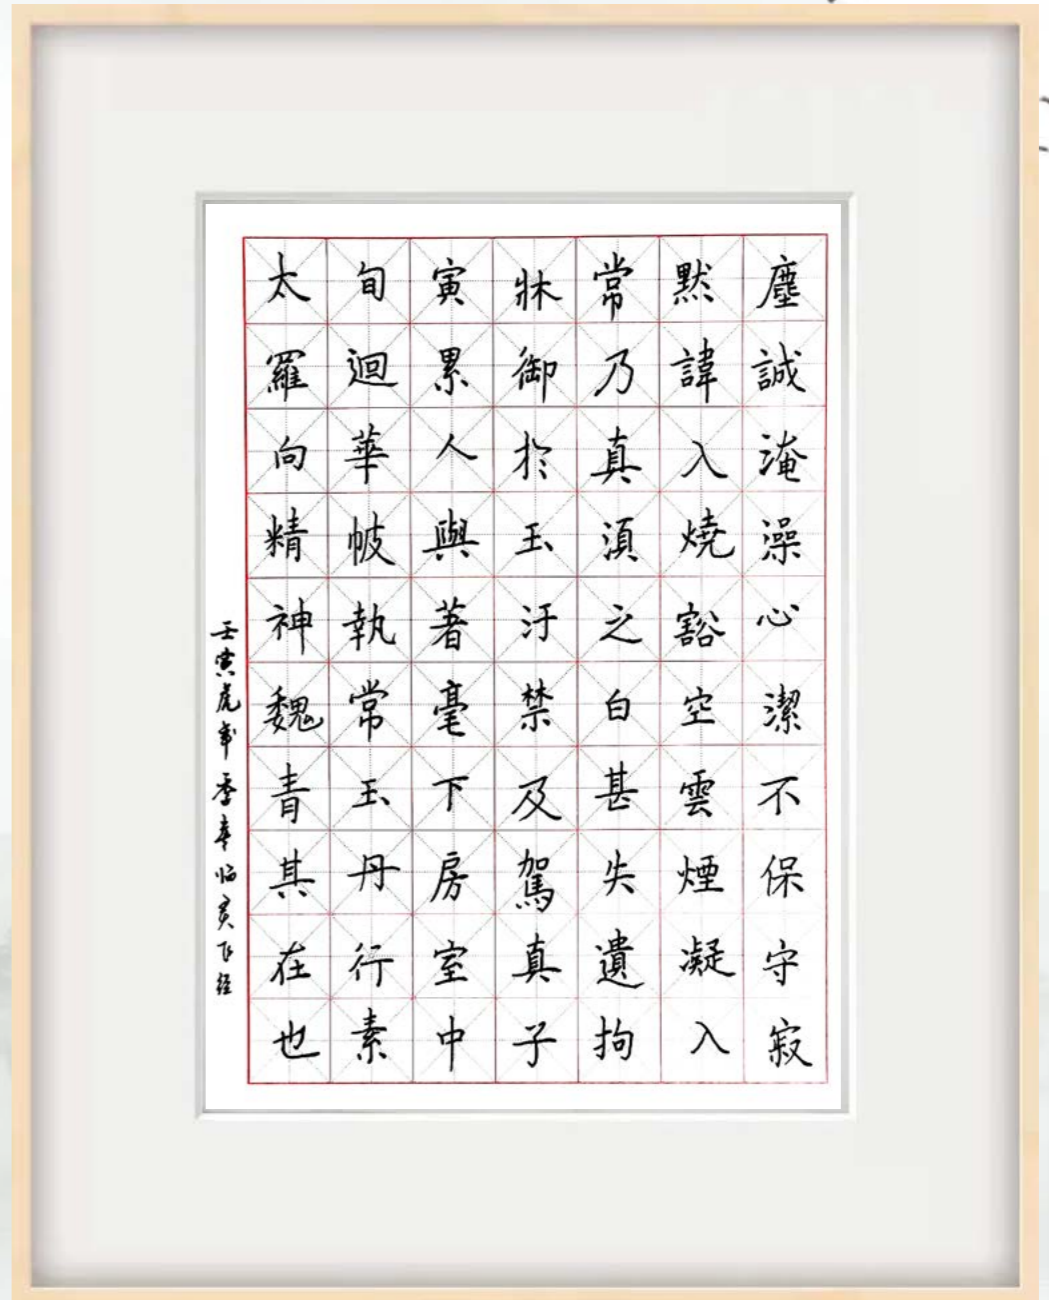 塵誠淹澡心潔不保守寂
默諱入燒豁空雲煙凝入
常乃真湏之白甚失遺拘
牀御於玉汙禁及駕真子
寅累人與著毫下房室中
旬迴華帔執常玉丹行素
太羅向精神魏青其在也
壬寅虎年季春临灵飞经